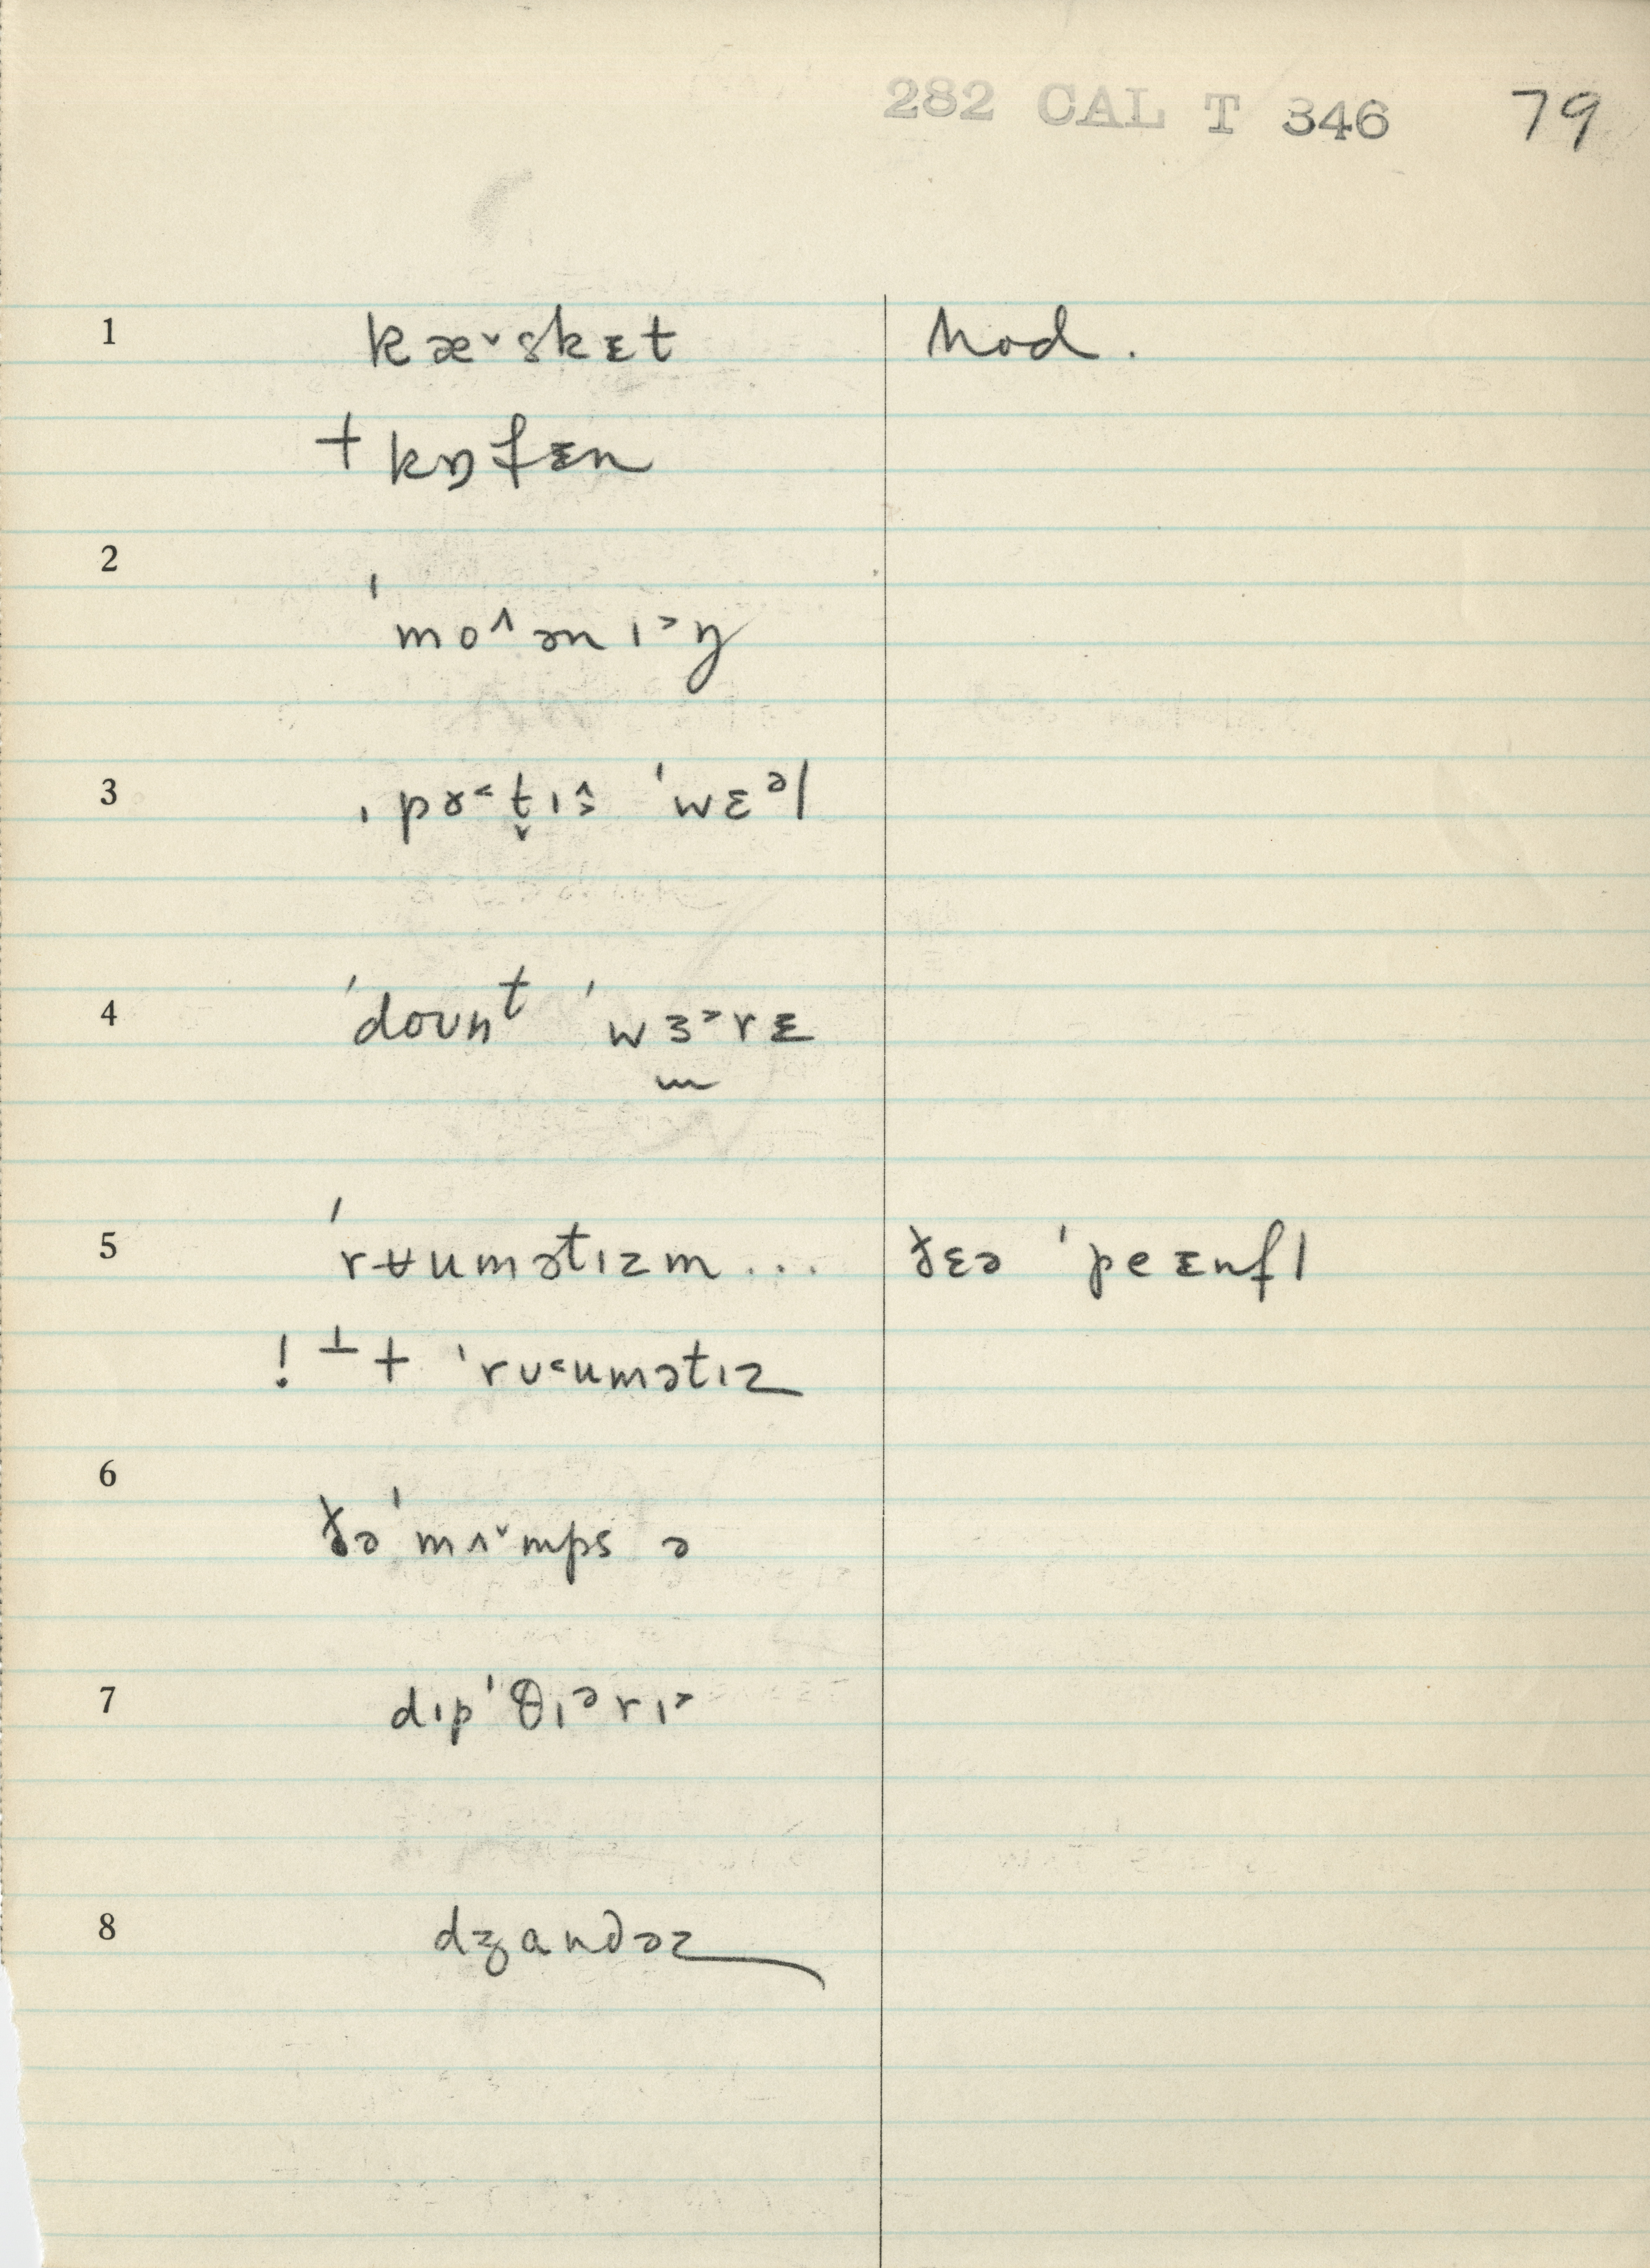 282 CAL T 346 79
1 kæ˅skᵻt mod.
+ kɒfᵻn
2 ˈmo˄ənɪ˃ŋ
3 ˌpɤ˂t̬ɪ˄ ˈwɛᵊl
4 ˈdoʊnᵗ ˈwɜ˃rᵻ
5 ˈrʉumətɪzm ... ðɛə ˈpeᵻnfl
! ⊥ + ˈrʊ˂umətɪz
6 ðə ˈmʌ˅mps ə
7 dɪpˈθɪᵊrɪ˃
8 dʒandəz